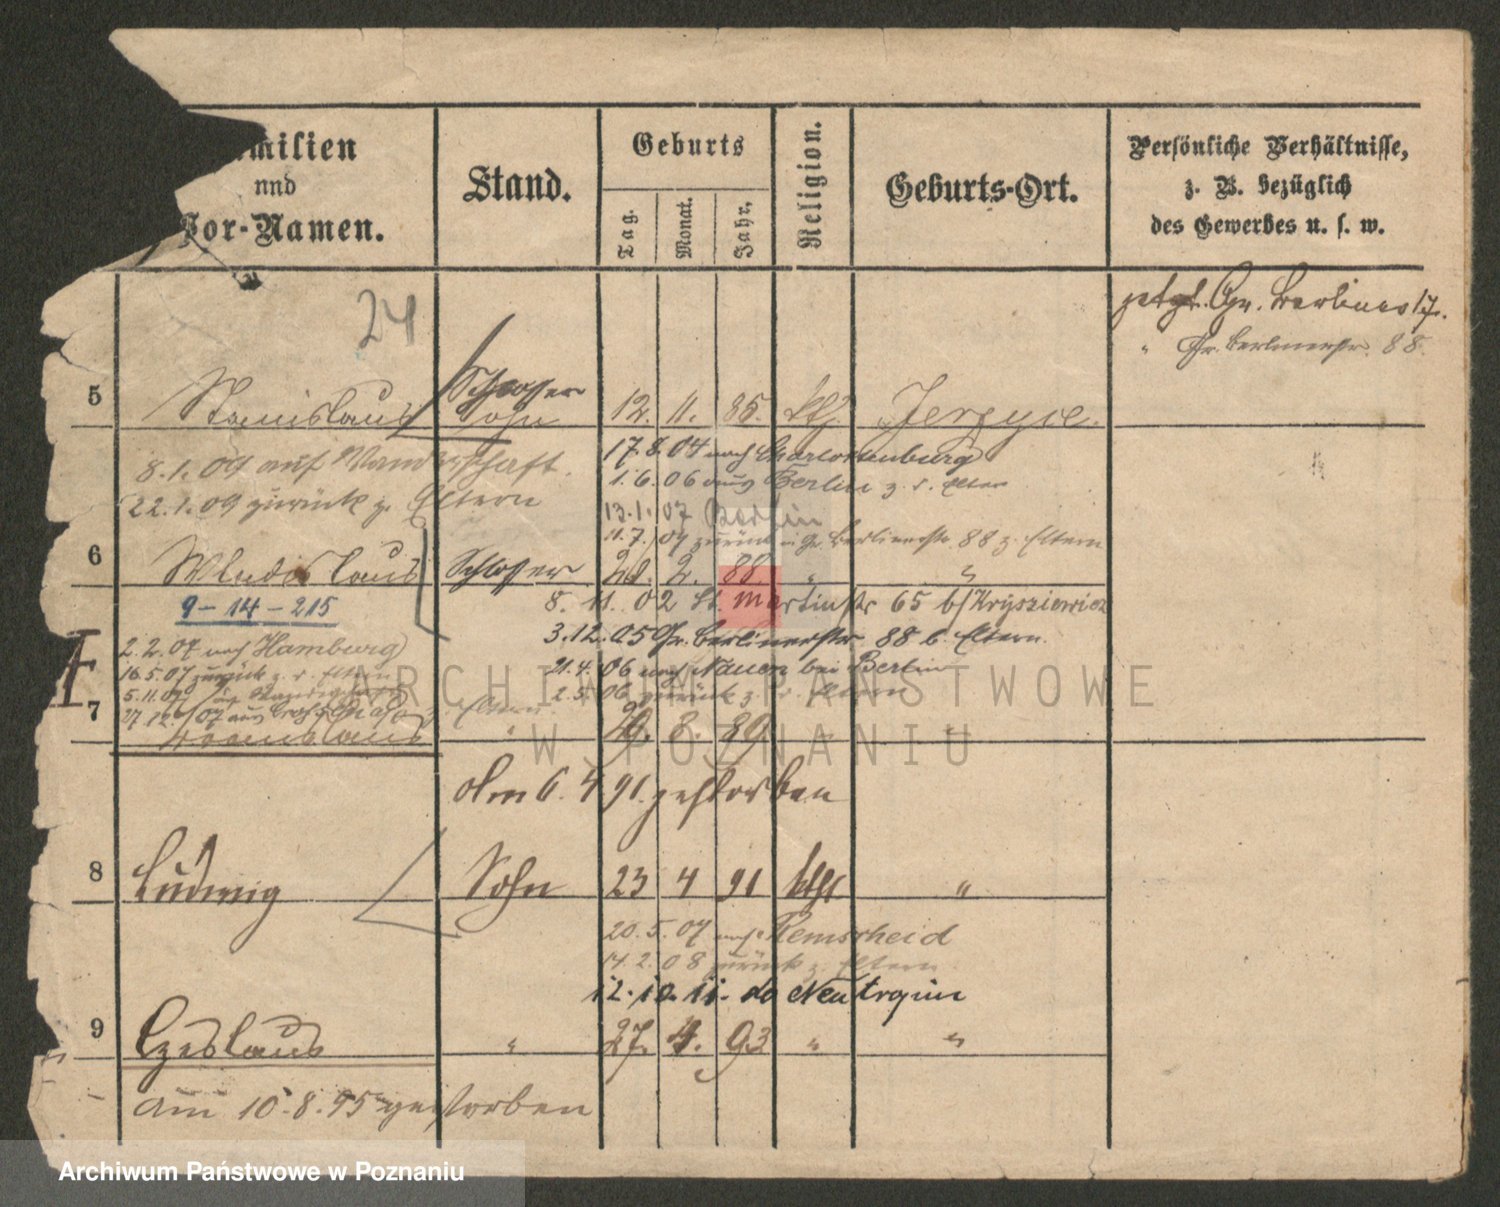 Familien
und
Vor-Namen.
Stand.
Geburts
Tag.
Monat.
Jahr.
Religion.
Geburts-Ort.
Persönliche Verhältnisse,
z. B. bezüglich
des Gewerbes u. s. w.
24
Gr. Berliner 17.
" Gr. Berlinerstr. 88.
Schlosser
5 Stanislaus Sohn 12. 11. 85. kth. Jerzyce.
17.8.04 nach Charlottenburg
8.1.09 auf Wanderschaft.
1.6.06 aus Berlin z. d. Eltern
22.1.09 zurück z. Eltern
13.1.07 Berlin
11.7.07 zurück Gr. Berlinerstr. 88 z. Eltern
6 Wladislaus Schlosser 28. 2. 88. " "
9-14-215
8. 11. 02 St. Martinstr 65 b/ Krysziewicz
3.12.05 Gr. Berlinerstr 88 b. Eltern.
2.2.07 nach Hamburg
21.4.06 nach Nauen bei Berlin
16.5.07 zurück z. d. Eltern
2.5.06 zurück z. d. Eltern
7 Stanislaus " 29. 8. 89 "
am 6. 4 91. gestorben
8 Ludwig Sohn 23 4 91 kth "
20.5.07 nach Remscheid
14.2.08 zurück z. Eltern
12.10.11. do
9 Czeslaus " 27. 4. 93 " "
am 10.8.95 gestorben
ARCHIWUM PAŃSTWOWE
W POZNANIU
Archiwum Państwowe w Poznaniu